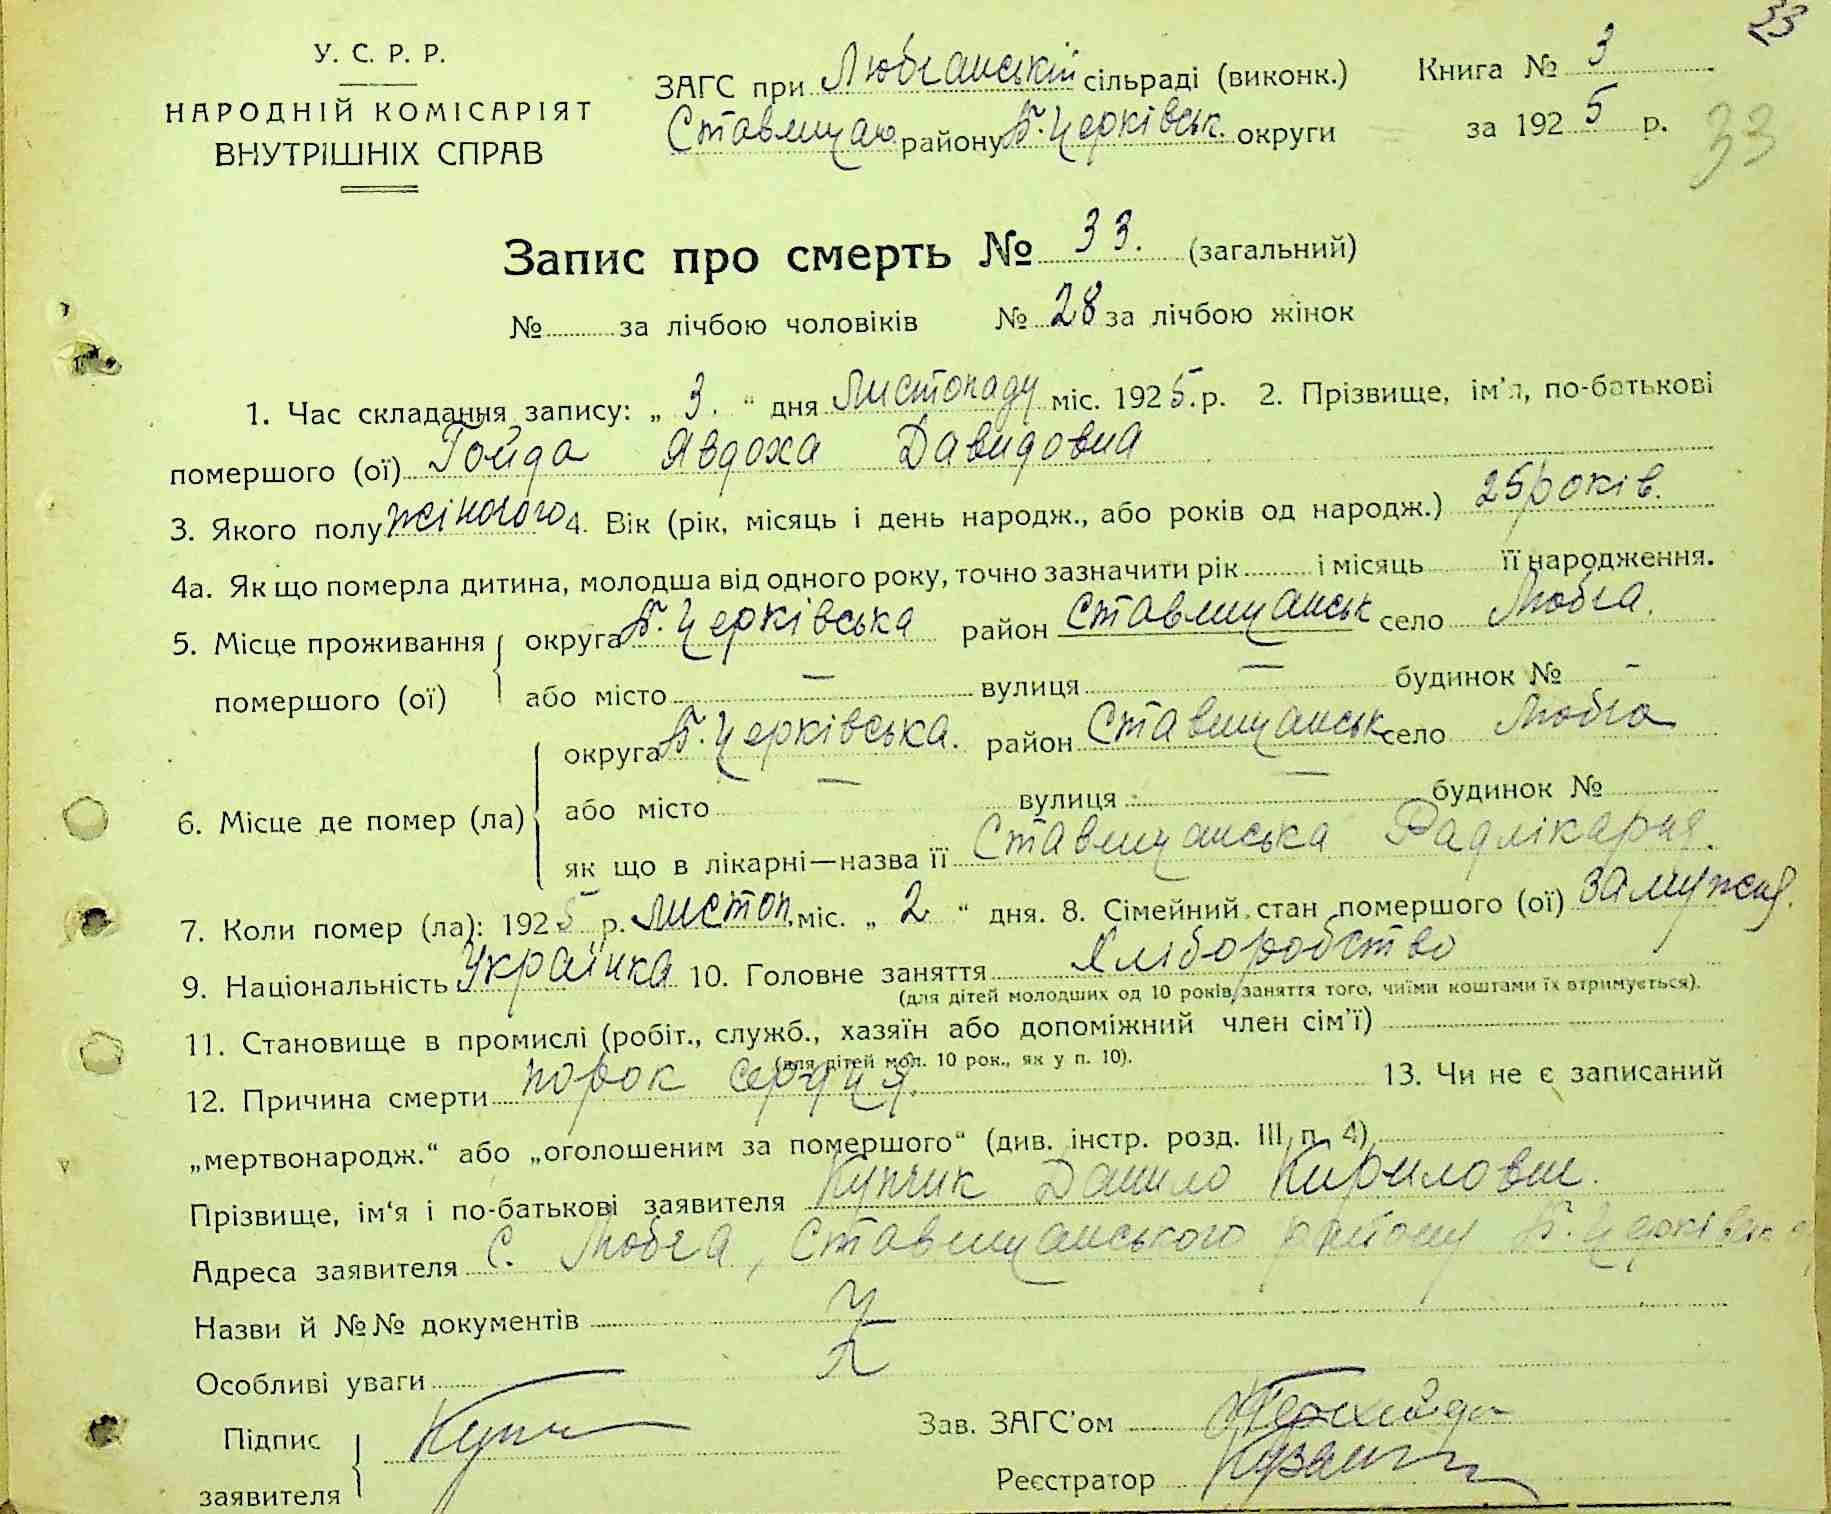 33
У. С. Р. Р.
НАРОДНІЙ КОМІСАРІЯТ
ВНУТРІШНІХ СПРАВ
ЗАГС при Любчанській сільраді (виконк.)
району Б. Церківськ. округи
Книга № 3
за 1925 р.
33
Запис про смерть № 33. (загальний)
№ за лічбою чоловіків № 28 за лічбою жінок
1. Час складання запису: „ 3. “ дня Листопаду міс. 1925. р. 2. Прізвище, ім'я, по-батькові
помершого (ої) Гойда Явдоха Давидовна
3. Якого полу жіночого 4. Вік (рік, місяць і день народж., або років од народж.) 25 років.
4а. Як що померла дитина, молодша від одного року, точно зазначити рік і місяць її народження.
5. Місце проживання округа Б. Церківська район Ставищанськ село Любча.
помершого (ої) або місто — вулиця — будинок № -
округа Б. Церківська. район Ставищанськ село Любча
6. Місце де помер (ла) або місто — вулиця — будинок №
як що в лікарні—назва її Ставищанська Радлікарня.
7. Коли помер (ла): 1925 р. листоп. міс. „ 2 “ дня. 8. Сімейний стан помершого (ої) замужня.
9. Національність Українка 10. Головне заняття Хліборобство
(для дітей молодших од 10 років, заняття того, чиїми коштами їх втримується).
11. Становище в промислі (робіт., служб., хазяїн або допоміжний член сім'ї)
(для дітей мол. 10 рок., як у п. 10).
12. Причина смерти порок сердця. 13. Чи не є записаний
„мертвонародж.“ або „оголошеним за помершого“ (див. інстр. розд. III, п. 4)
Прізвище, ім'я і по-батькові заявителя Купчик Данило Кирилович.
Адреса заявителя с. Любча, Ставищанського району Б. Церківськ
Назви й №№ документів
Особливі уваги
Підпис
заявителя
Зав. ЗАГС'ом
Реєстратор